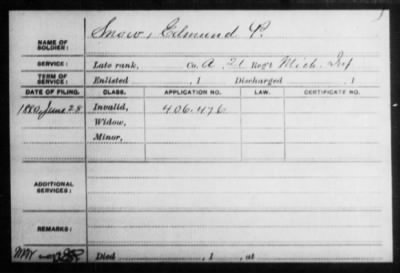 NAME OF SOLDIER: Snow, Edmund P.
SERVICE: Late rank, Co. A, 21 Reg't Mich. Inf
TERM OF SERVICE: Enlisted , 1 Discharged , 1
DATE OF FILING. CLASS. APPLICATION NO. LAW. CERTIFICATE NO.
1880, June 28 Invalid, 406.476
Widow,
Minor,
ADDITIONAL SERVICES:
REMARKS:
Died , 1 , at